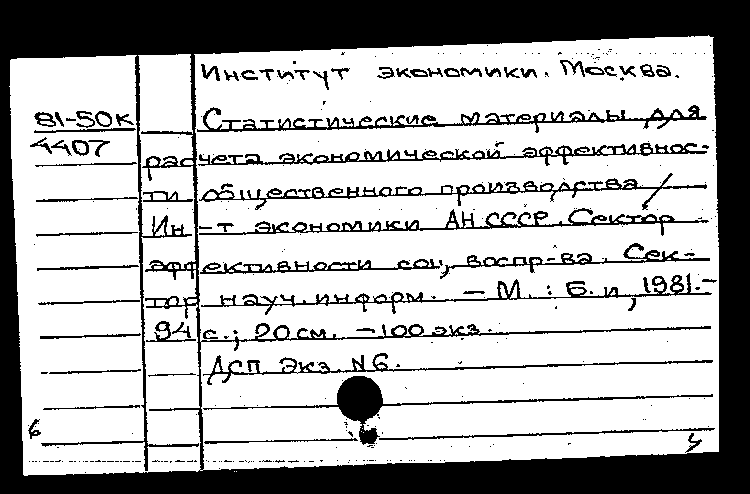 Институт экономики. Москва.
81-50к Статистические материалы для
4407 расчета экономической эффективнос-
ти общественного производства /
Ин-т экономики АН СССР. Сектор
эффективности соц. воспр-ва. Сек-
тор науч. информ. – М. : Б. и, 1981.-
94 с.; 20 см. – 100 экз.
ДСП Экз. N6.
6